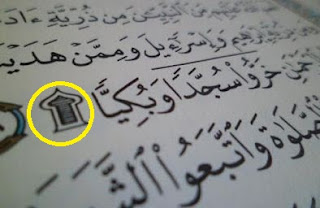 مِّنَ ٱلنَّبِيِّـۧنَ مِن ذُرِّيَّةِ ءَادَ
هِيمَ وَإِسْرَٰٓءِيلَ وَمِمَّنْ هَدَيْنَ
خَرُّوا۟ سُجَّدًا وَبُكِيًّا
ٱلصَّلَوٰةَ وَٱتَّبَعُوا۟ ٱلشَّ